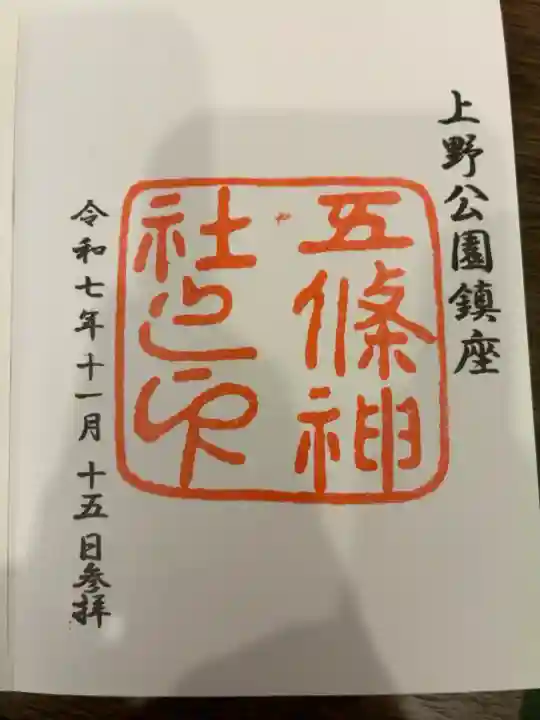 上野公園鎮座
五條神
社之印
令和七年十一月十五日参拝